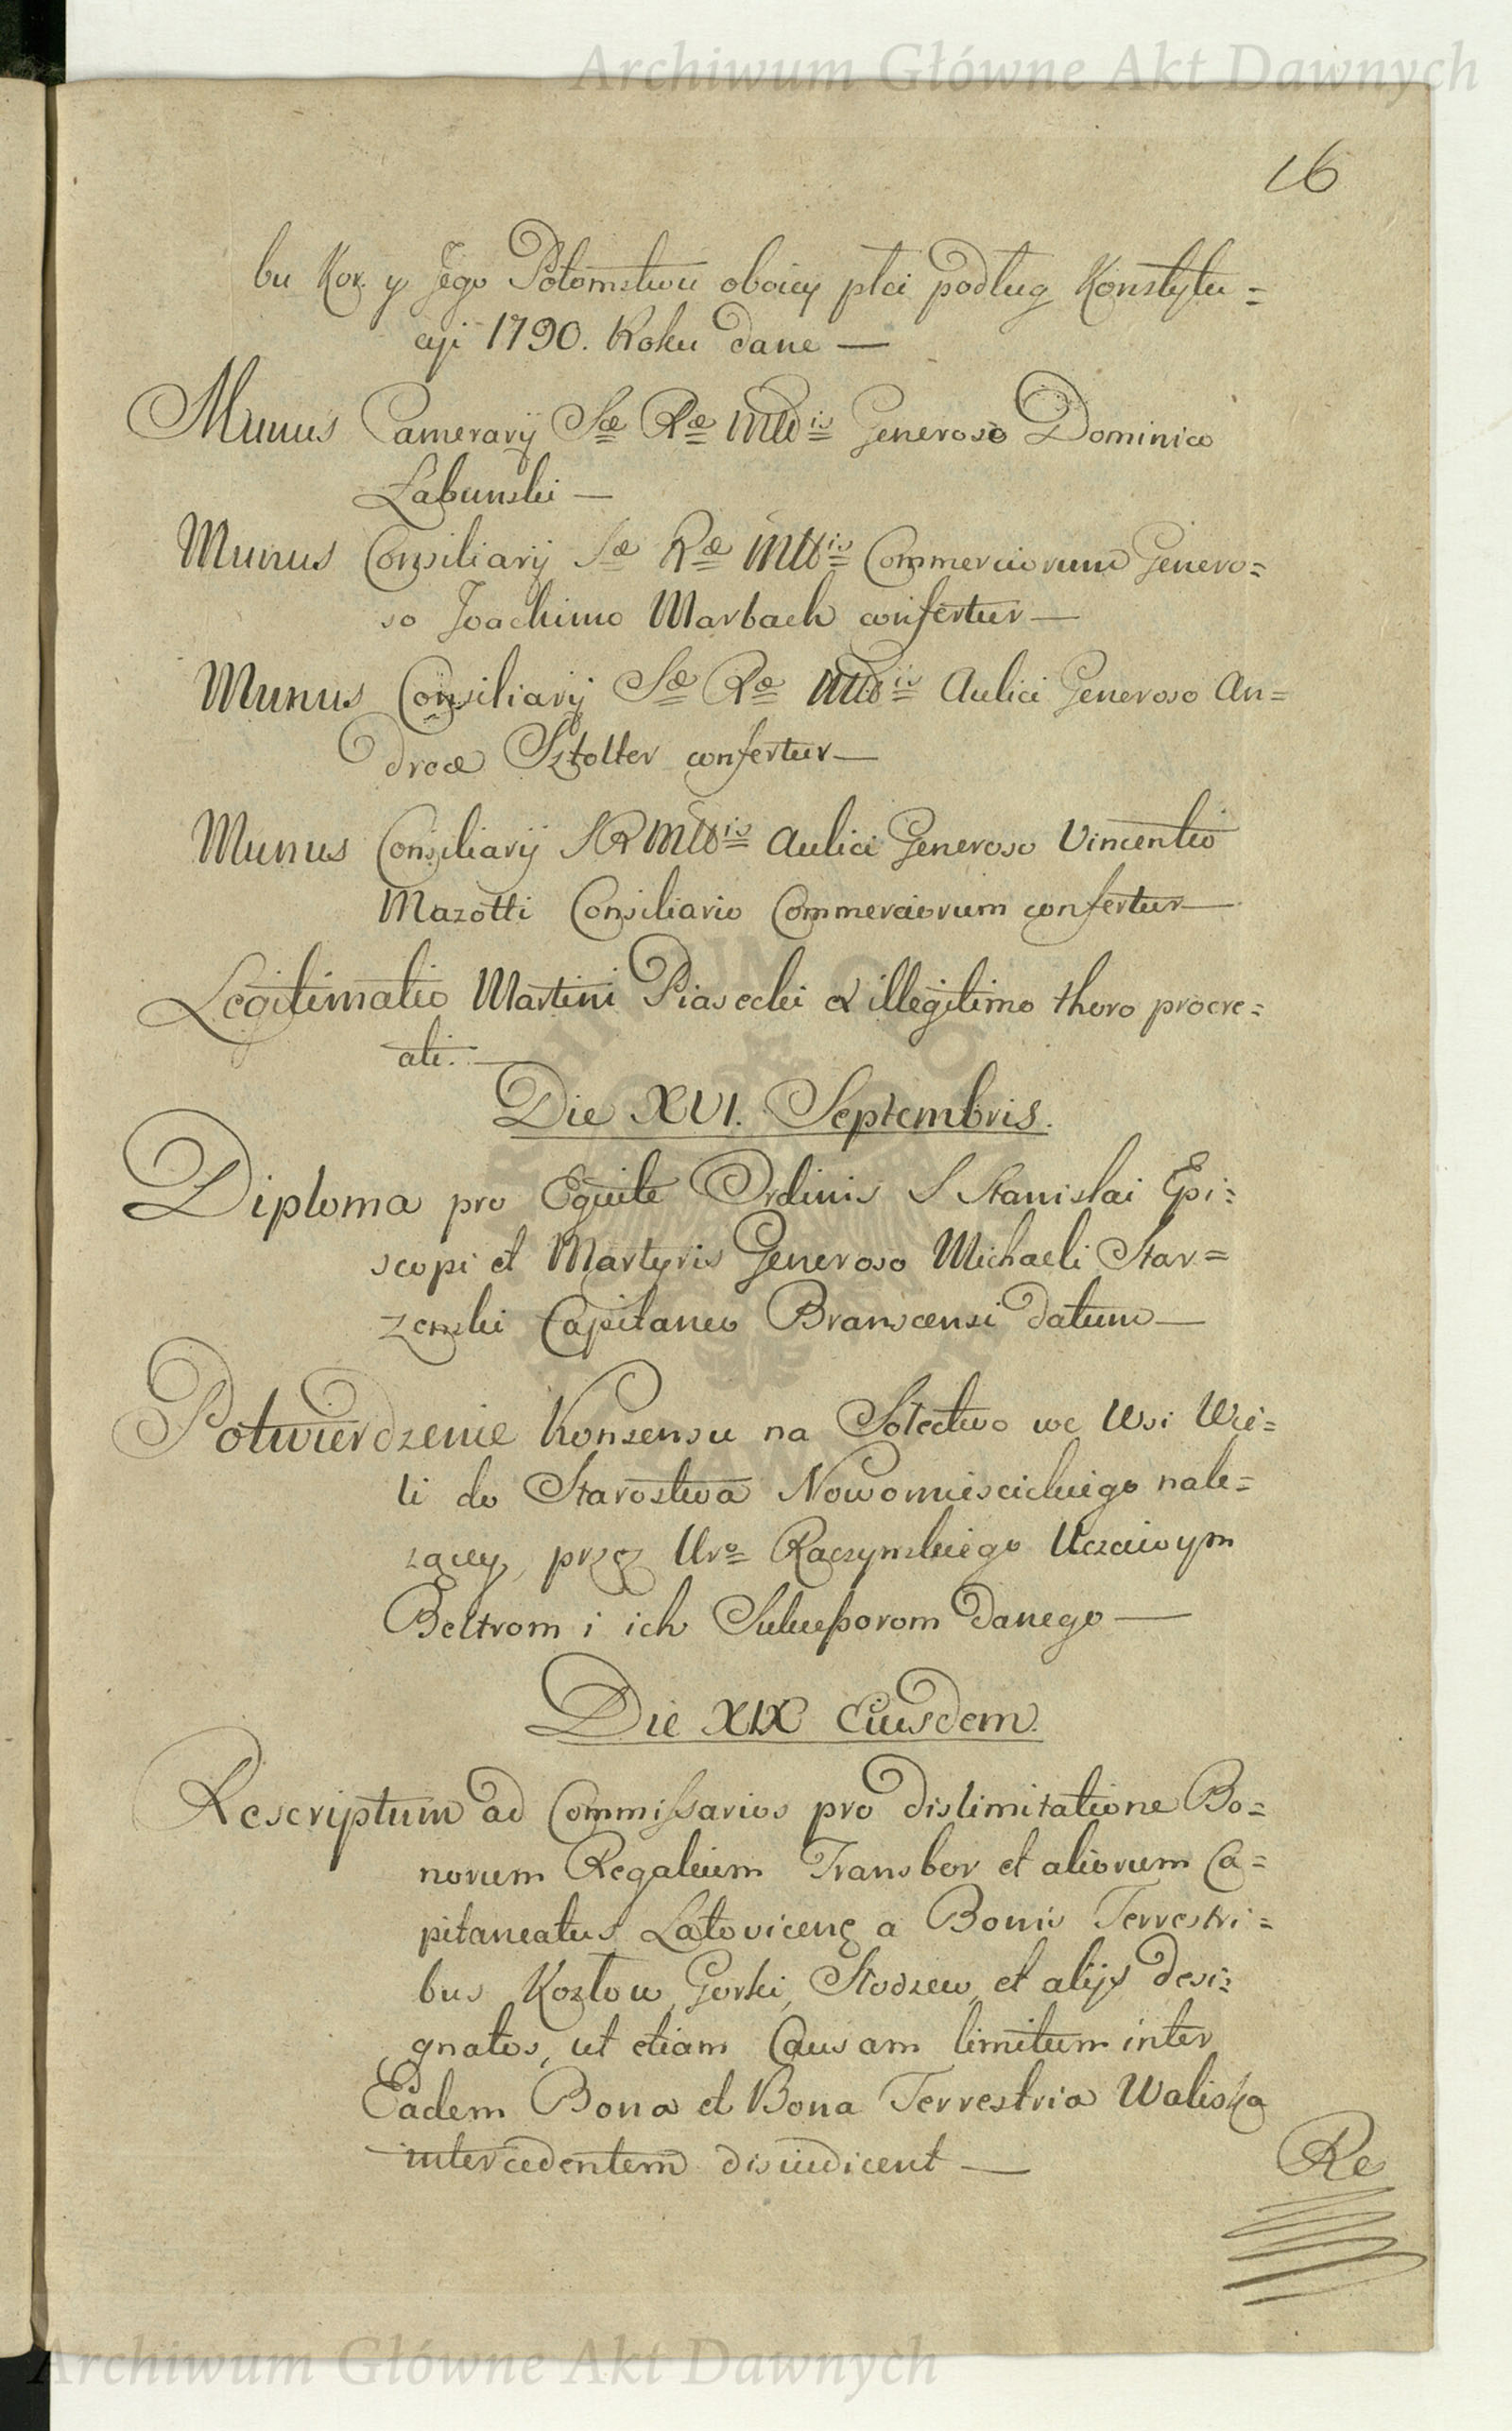 Archiwum Główne Akt Dawnych
16
bu Kor. y Jego Potomstwu oboiey płci podług Konstytu=
cyi 1790. Roku dane —
Munus Camerarij Sæ Ræ Mttis Generoso Dominico
Łabunski —
Munus Consiliarij Sæ Ræ Mttis Commerciorum Genero=
so Joachimo Marbach confertur —
Munus Consiliarij Sæ Ræ Mttis Aulici Generoso An=
dreæ Sztolter confertur —
Munus Consiliarij SR Mttis Aulici Generoso Vincentio
Mazotti Consiliario Commerciorum confertur —
Legitimatio Martini Piasecki ex illegitimo thoro procre=
ati. —
Die XVI. Septembris.
Diploma pro Equite Ordinis S Stanislai Epi=
scopi et Martyris Generoso Michaeli Star=
zenski Capitaneo Branscensi datum —
Potwierdzenie Konsensu na Sołectwo we Wsi Wie=
li do Starostwa Nowomieiscickiego nale=
zącey, przez Uro Raczynskiego Uczciwym
Beltrom i ich Sukceßorom danego —
Die XIX Eiusdem.
Rescriptum ad Commissarios pro dislimitatione Bo=
norum Regalium Transbor et aliorum Ca=
pitaneatus Latovicens a Bonis Terrestri=
bus Kozłow, Gorki, Stodzew, et alijs desi=
gnatos, ut etiam Causam limitum inter
Eadem Bona et Bona Terrestria Waliska
intercedentem disiudicent —
Re
Archiwum Główne Akt Dawnych